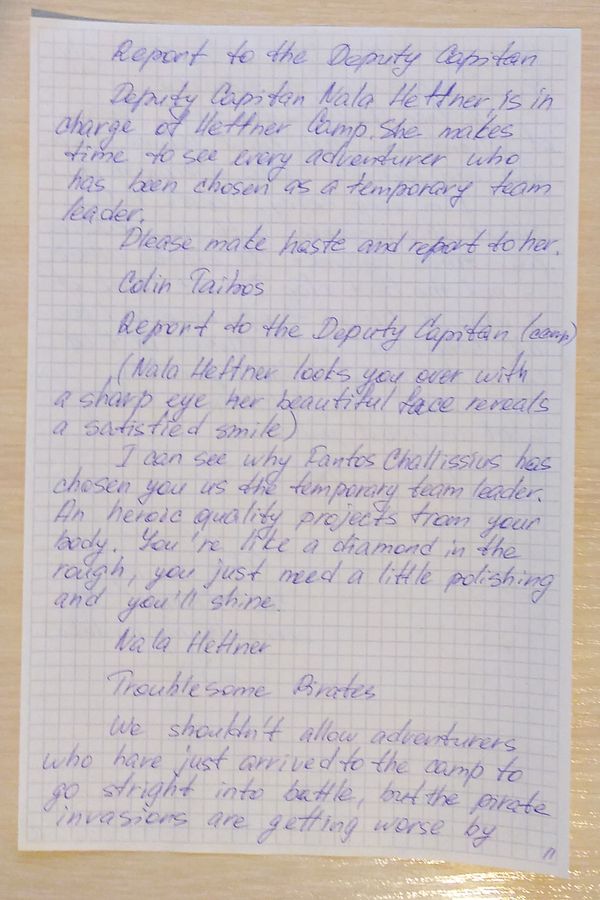 Report to the Deputy Capitan
Deputy Capitan Nala Hettner, is in
charge of Hettner Camp. She makes
time to see every adventurer who
has been chosen as a temporary team
leader.
Please make haste and report to her.
Colin Taibos
Report to the Deputy Capitan (camp)
(Nala Hettner looks you over with
a sharp eye her beautiful face reveals
a satistied smile)
I can see why Fantos Challissius has
chosen you us the temporary team leader.
An heroic quality projects from your
body. You're like a diamond in the
rough, you just need a little polishing
and you'll shine.
Nala Hettner
Troublesome Pirates
We shouldn't allow adventurers
who have just arrived to the camp to
go stright into battle, but the pirate
invasions are getting worse by
11